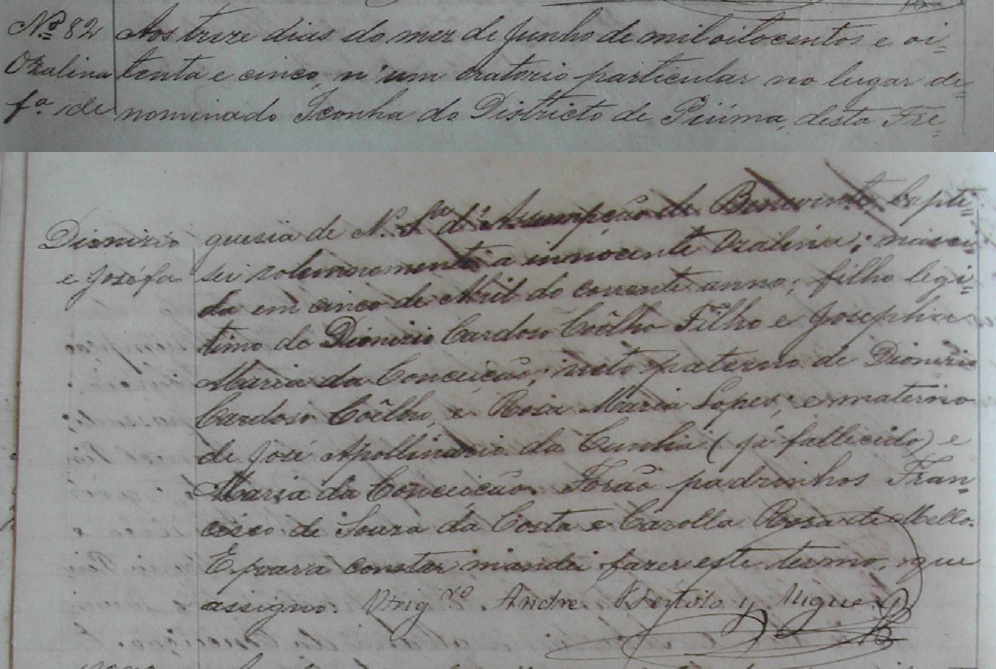 Nº 82 Aos treze dias do mez de Junho de mil oitocentos e oi=
Ozalina tenta e cinco, n'um oratorio particular no lugar de=
fª. de nominado Iconha do Districto de Piúma, desta Fre=
Dionizio guesia de N. Sra d'Assumpção de Benevente, bapti=
e Joséfa sei solemnemente a innocente Ozalina; nasci=
da em cinco de Abril do corrente anno; filho legi=
timo de Dionizio Cardoso Coêlho Filho e Josepha
Maria da Conceição; neto paterno de Dionizio
Cardoso Coêlho, e Rosa Maria Lopes; e materno
de José Apollinario da Cunha (já fallecido) e
Maria da Conceição. Forão padrinhos Fran=
cisco de Souza da Costa e Carolla Rosa de Mello.
E para constar mandei fazer este termo, que
assigno. Vrig.º Andre